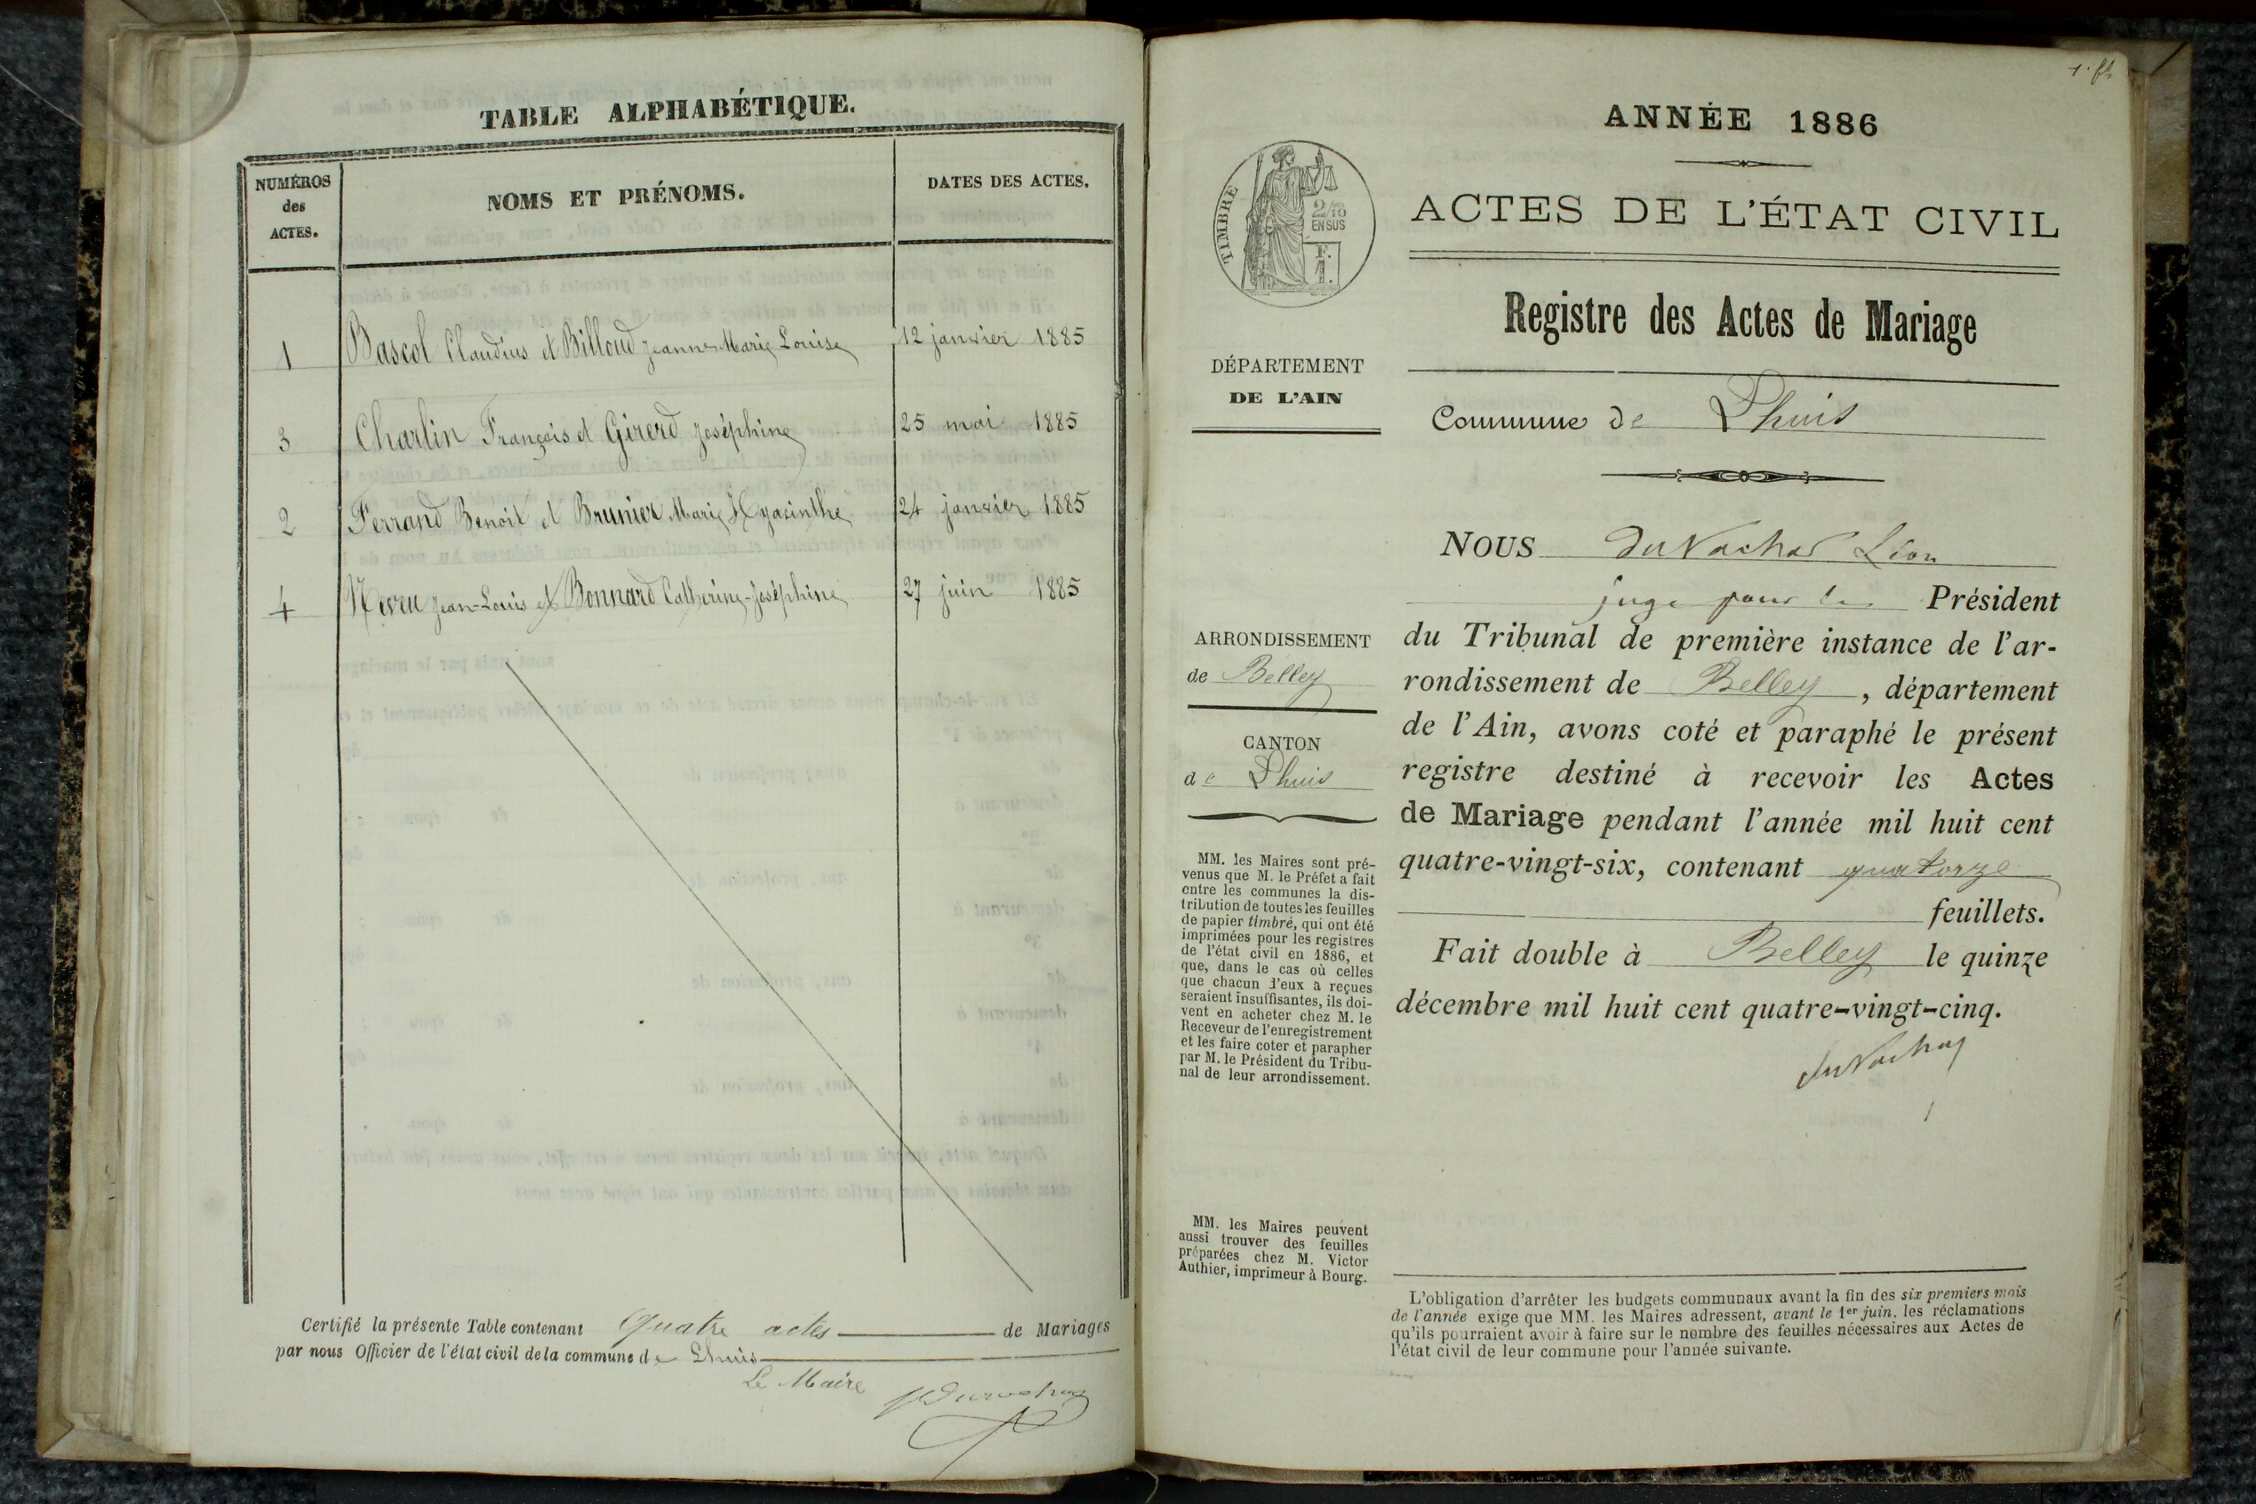 TABLE ALPHABÉTIQUE.
NUMÉROS
des
ACTES.
NOMS ET PRÉNOMS.
DATES DES ACTES.
1 Bascol Claudius et Billoud Jeanne Marie Louise 12 janvier 1885
3 Charlin François et Girerd Joséphine 25 mai 1885
2 Ferrand Benoit et Brunier Marie Hyacinthe 24 janvier 1885
4 Neveu Jean-Louis et Bonnard Catherine-Joséphine 27 juin 1885
Certifié la présente Table contenant Quatre actes de Mariages
par nous Officier de l'état civil de la commune de Lhuis
Le Maire
1er f.
ANNÉE 1886
ACTES DE L'ÉTAT CIVIL
TIMBRE
2/10
EN SUS
F.
1.
Registre des Actes de Mariage
DÉPARTEMENT
DE L'AIN
Commune de Lhuis
NOUS Léon
juge pour le Président
du Tribunal de première instance de l'ar-
rondissement de Belley, département
de l'Ain, avons coté et paraphé le présent
registre destiné à recevoir les Actes
de Mariage pendant l'année mil huit cent
quatre-vingt-six, contenant quatorze
feuillets.
Fait double à Belley le quinze
décembre mil huit cent quatre-vingt-cinq.
ARRONDISSEMENT
de Belley
CANTON
de Lhuis
MM. les Maires sont pré-
venus que M. le Préfet a fait
entre les communes la dis-
tribution de toutes les feuilles
de papier timbré, qui ont été
imprimées pour les registres
de l'état civil en 1886, et
que, dans le cas où celles
que chacun d'eux a reçues
seraient insuffisantes, ils doi-
vent en acheter chez M. le
Receveur de l'enregistrement
et les faire coter et parapher
par M. le Président du Tribu-
nal de leur arrondissement.
MM. les Maires peuvent
aussi trouver des feuilles
préparées chez M. Victor
Authier, imprimeur à Bourg.
L'obligation d'arrêter les budgets communaux avant la fin des six premiers mois
de l'année exige que MM. les Maires adressent, avant le 1er juin, les réclamations
qu'ils pourraient avoir à faire sur le nombre des feuilles nécessaires aux Actes de
l'état civil de leur commune pour l'année suivante.